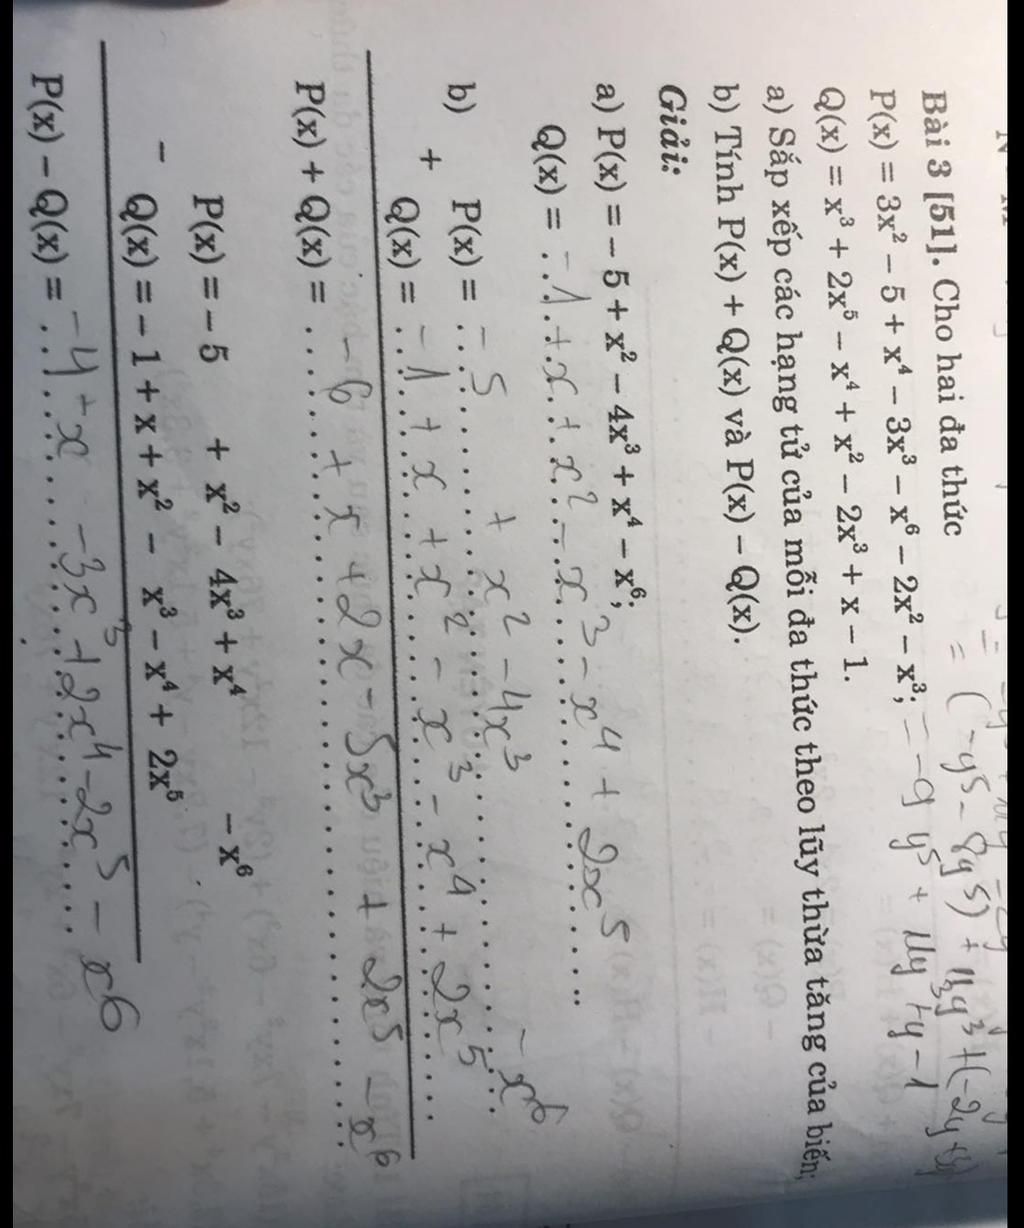 = (-y⁵ - 8y⁵) + 11y³ + (-2y
Bài 3 [51]. Cho hai đa thức
P(x) = 3x² – 5 + x⁴ – 3x³ – x⁶ – 2x² – x³; = -9y⁵ + 11y³ + y - 1
Q(x) = x³ + 2x⁵ – x⁴ + x² – 2x³ + x – 1.
a) Sắp xếp các hạng tử của mỗi đa thức theo lũy thừa tăng của biến;
b) Tính P(x) + Q(x) và P(x) – Q(x).
Giải:
a) P(x) = – 5 + x² – 4x³ + x⁴ – x⁶;
Q(x) = -1 + x + x² - x³ - x⁴ + 2x⁵
b) P(x) = -5 + x² - 4x³ - x⁶
+
Q(x) = -1 + x + x² - x³ - x⁴ + 2x⁵
P(x) + Q(x) = -6 + x + 2x - 5x³ + 2x⁵ - x⁶
P(x) = – 5 + x² – 4x³ + x⁴ – x⁶
–
Q(x) = – 1 + x + x² – x³ – x⁴ + 2x⁵
P(x) – Q(x) = -4 + x - 3x³ + 2x⁴ - 2x⁵ - x⁶